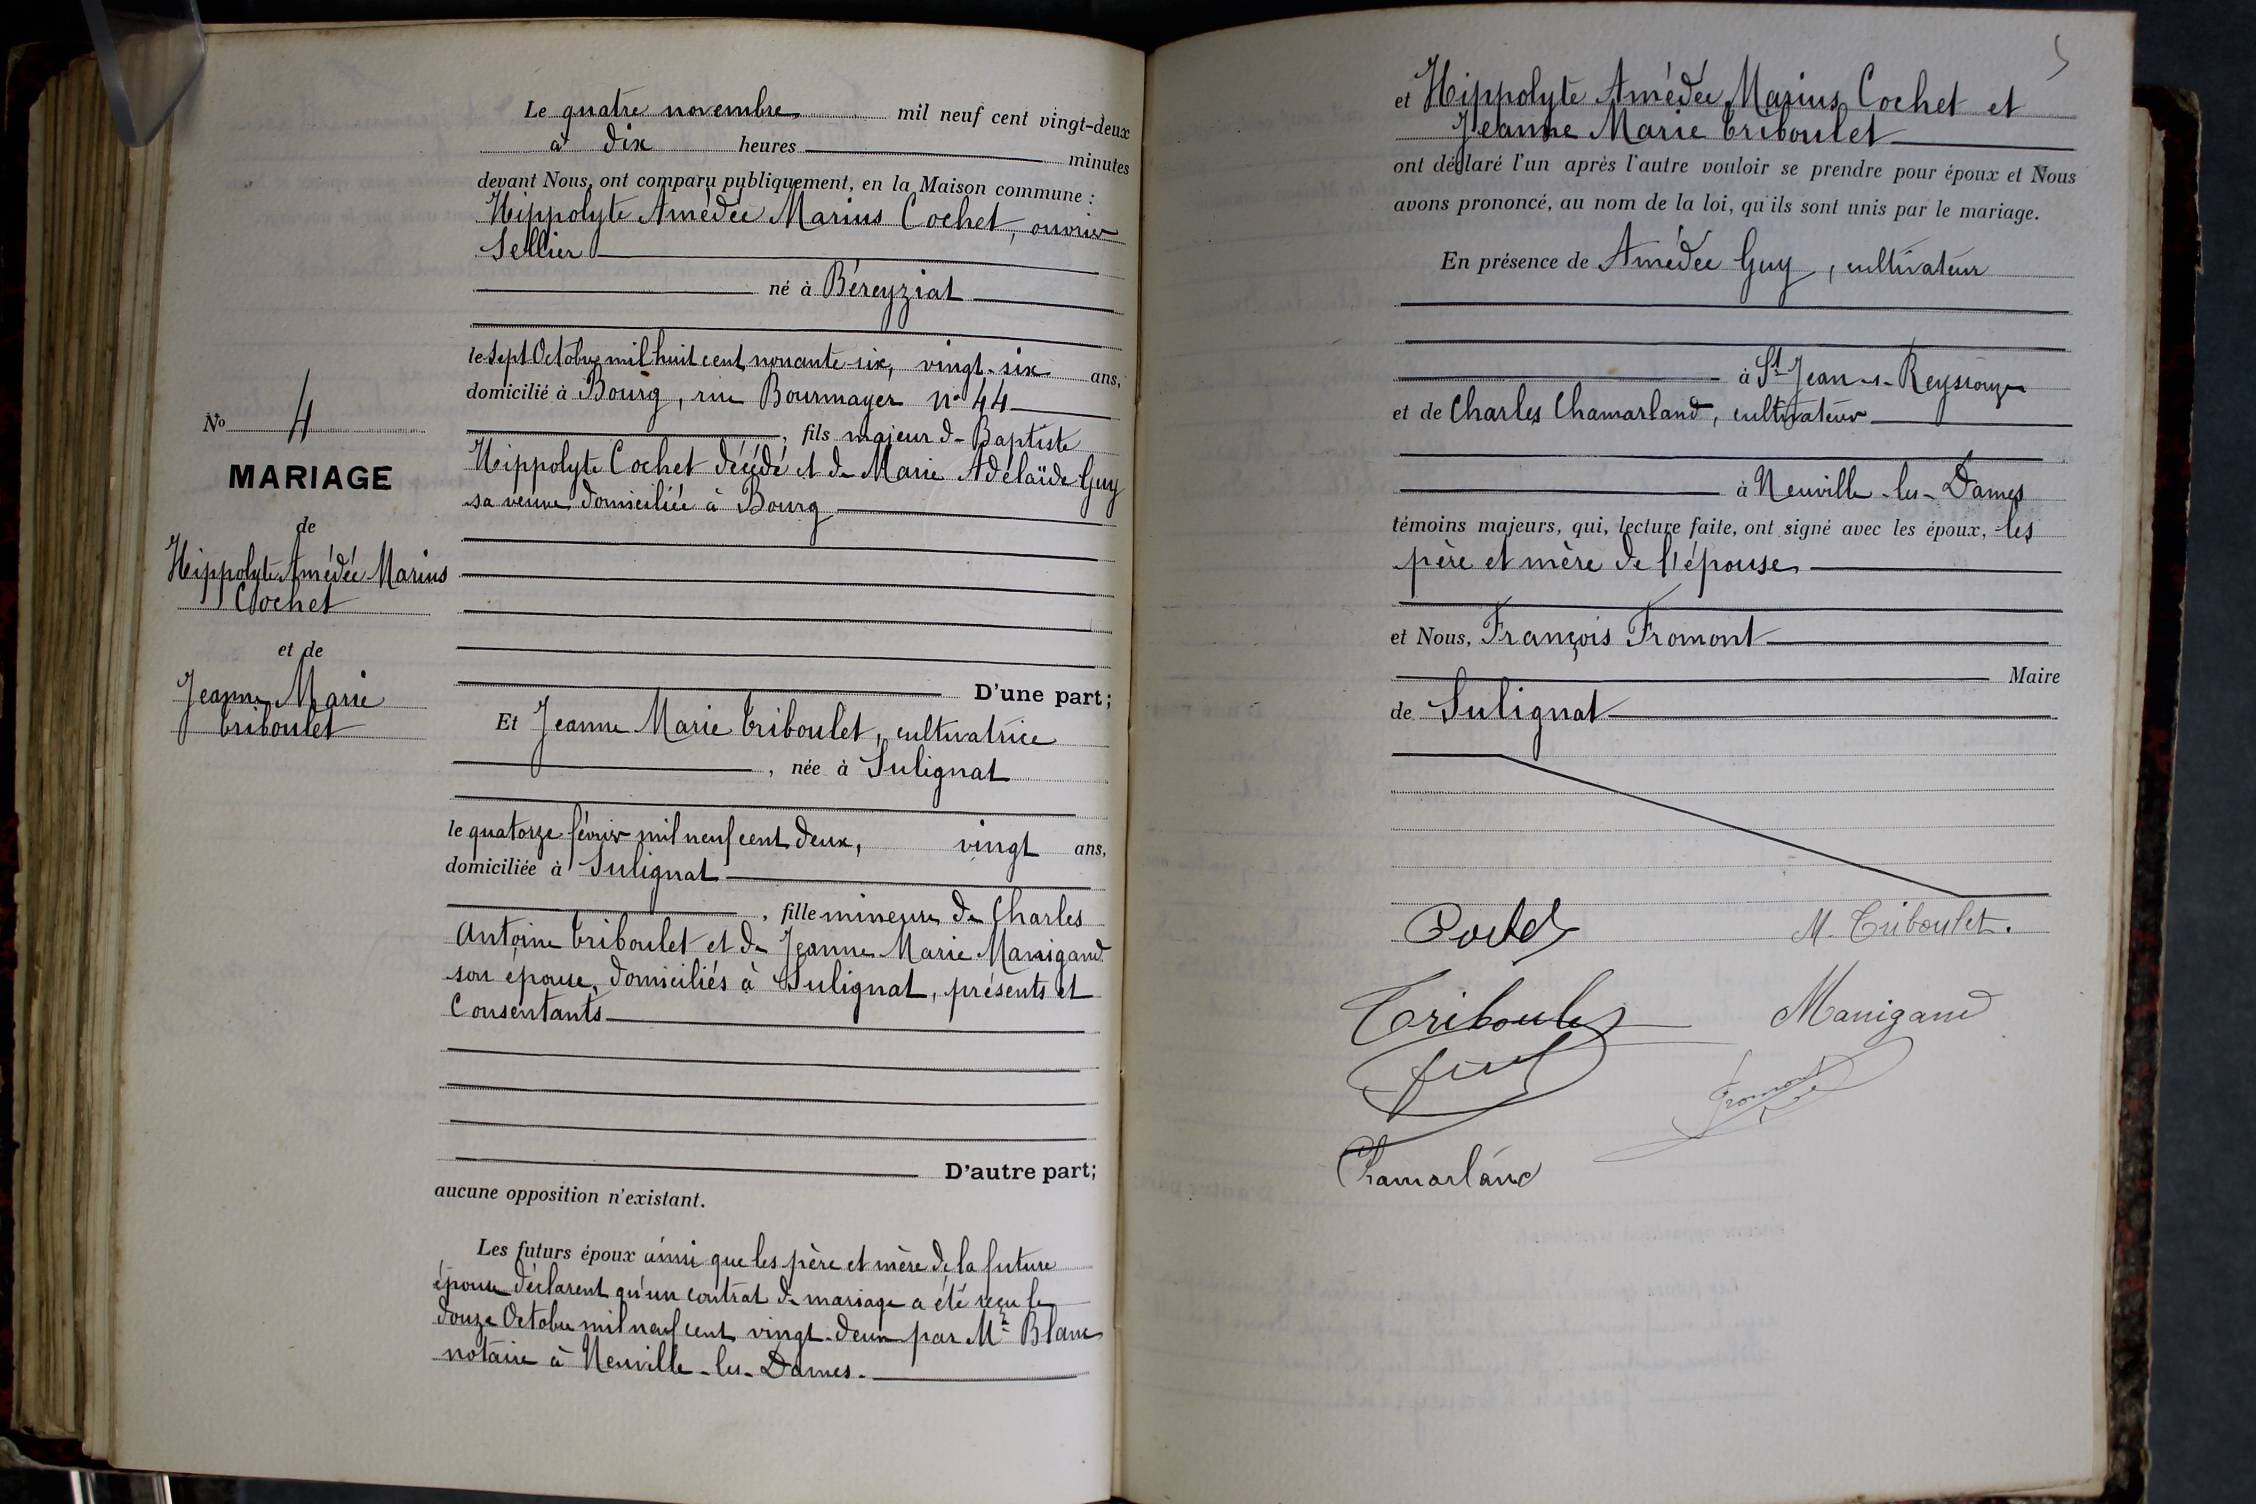 Le quatre novembre mil neuf cent vingt-deux
à dix heures minutes
devant Nous, ont comparu publiquement, en la Maison commune :
Hippolyte Amédée Marius Cochet, ouvrier
Sellier
né à Béreyziat
le sept Octobre mil huit cent nonante-six, vingt-six ans,
domicilié à Bourg, rue Bourmayer n° 44
, fils majeur de Baptiste
Hippolyte Cochet décédé et de Marie Adélaïde Guy
sa veuve domiciliée à Bourg
D'une part;
Et Jeanne Marie Triboulet, cultivatrice
, née à Sulignat
le quatorze février mil neuf cent deux, vingt ans,
domiciliée à Sulignat
, fille mineure de Charles
Antoine Triboulet et de Jeanne Marie Manigand
son épouse, domiciliés à Sulignat, présents et
Consentants
D'autre part;
aucune opposition n'existant.
Les futurs époux ainsi que les père et mère de la future
épouse déclarent qu'un contrat de mariage a été reçu le
douze Octobre mil neuf cent vingt-deux par Me Blanc
notaire à Neuville-les-Dames.
No 4
MARIAGE
de
Hippolyte Amédée Marius
Cochet
et de
Jeanne Marie
Triboulet
et Hippolyte Amédée Marius Cochet et
Jeanne Marie Triboulet
ont déclaré l'un après l'autre vouloir se prendre pour époux et Nous
avons prononcé, au nom de la loi, qu'ils sont unis par le mariage.
En présence de Amédée Guy, cultivateur
à St Jean-s-Reyssouze
et de Charles Chamarland, cultivateur
à Neuville-les-Dames
témoins majeurs, qui, lecture faite, ont signé avec les époux, les
père et mère de l'épouse
et Nous, François Fromont
Maire
de Sulignat
Cochet
M. Triboulet.
Triboulet
Manigand
Guy
Fromont
Chamarland